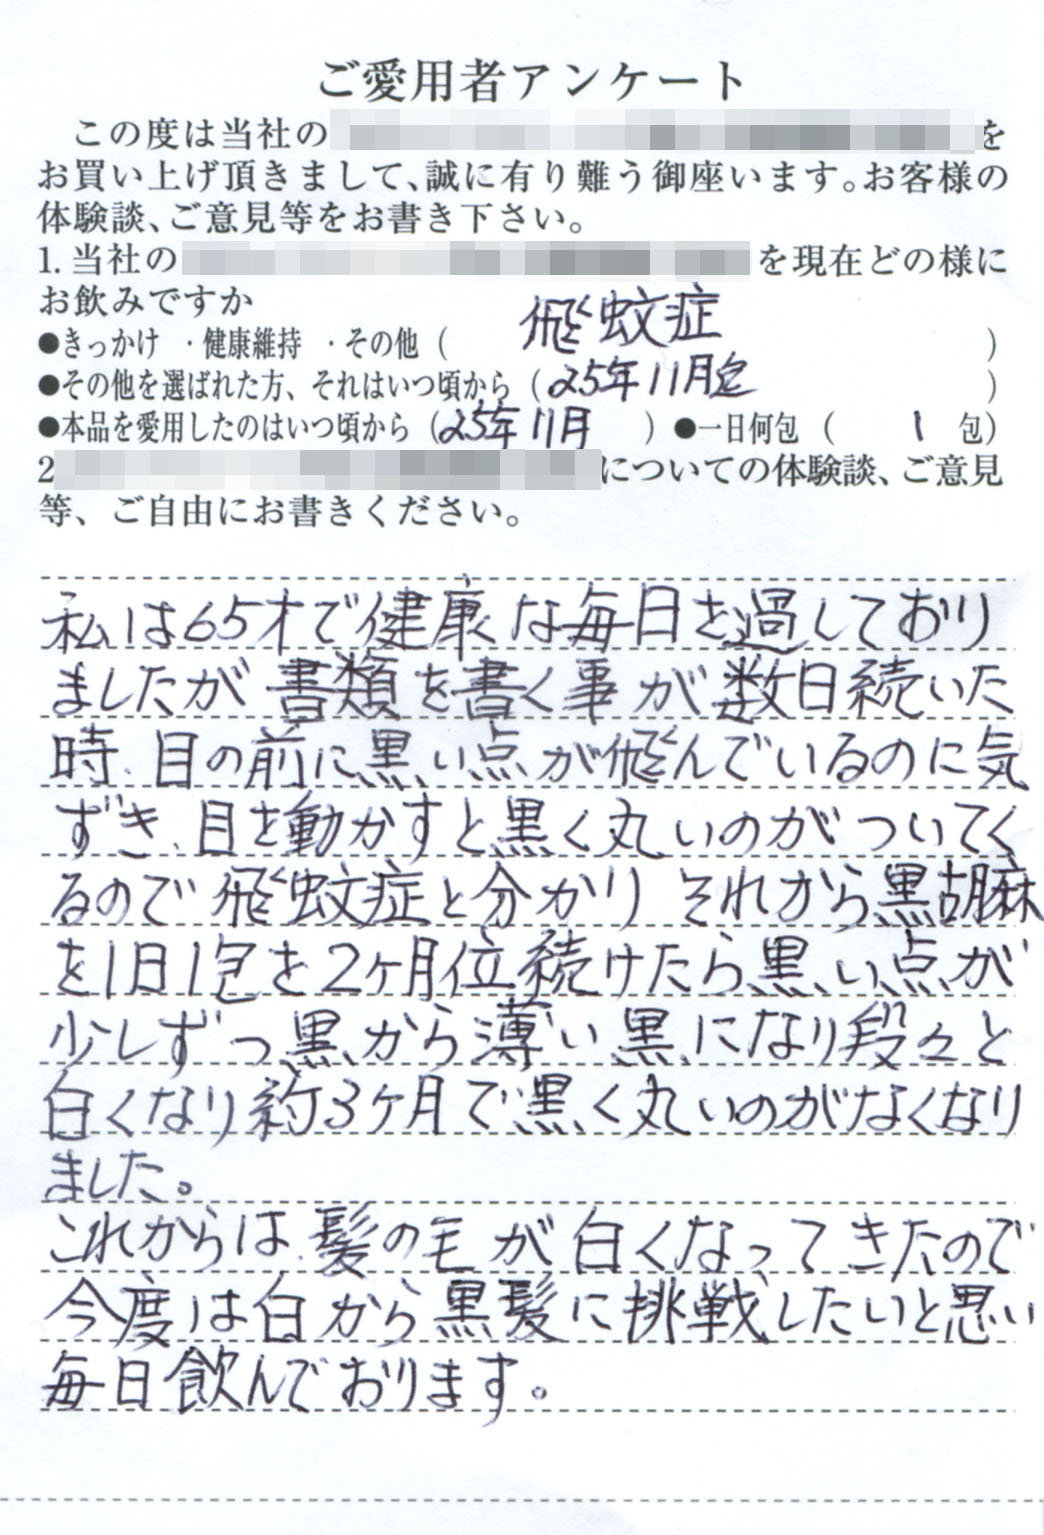 ご愛用者アンケート
この度は当社の を
お買い上げ頂きまして、誠に有り難う御座います。お客様の
体験談、ご意見等をお書き下さい。
1. 当社の を現在どの様に
お飲みですか
●きっかけ ・健康維持 ・その他 ( 飛蚊症 )
●その他を選ばれた方、それはいつ頃から (25年11月 )
●本品を愛用したのはいつ頃から (25年11月 ) ●一日何包 ( 1 包)
2 についての体験談、ご意見
等、ご自由にお書きください。
私は65才で健康な毎日を過しており
ましたが書類を書く事が数日続いた
時、目の前に黒い点が飛んでいるのに気
ずき、目を動かすと黒く丸いのがついてく
るので飛蚊症と分かり それから黒胡麻
を1日1包を2ヶ月位続けたら黒い点が
少しずつ黒から薄い黒になり段々と
白くなり約3ヶ月で黒く丸いのがなくなり
ました。
これからは、髪の毛が白くなってきたので
今度は白から黒髪に挑戦したいと思い
毎日飲んでおります。